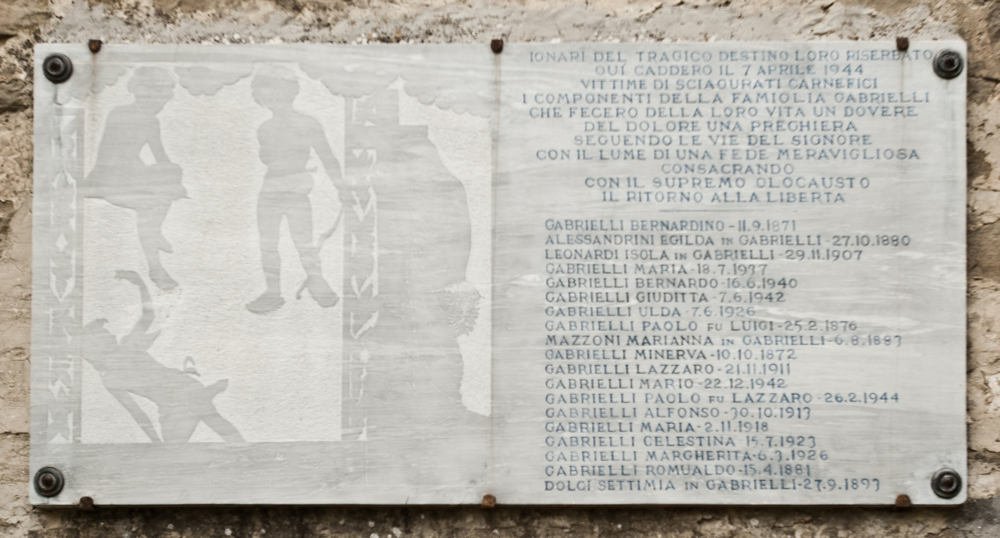 IONARÎ DEL TRAGICO DESTINO LORO RISERBATO
QUI CADDERO IL 7 APRILE 1944
VITTIME DI SCIAGURATI CARNEFICI
I COMPONENTI DELLA FAMIGLIA GABRIELLI
CHE FECERO DELLA LORO VITA UN DOVERE
DEL DOLORE UNA PREGHIERA
SEGUENDO LE VIE DEL SIGNORE
CON IL LUME DI UNA FEDE MERAVIGLIOSA
CONSACRANDO
CON IL SUPREMO OLOCAUSTO
IL RITORNO ALLA LIBERTA
GABRIELLI BERNARDINO - 11.9.1871
ALESSANDRINI EGILDA IN GABRIELLI - 27.10.1880
LEONARDI ISOLA IN GABRIELLI - 29.11.1907
GABRIELLI MARIA - 18.7.1937
GABRIELLI BERNARDO - 16.6.1940
GABRIELLI GIUDITTA - 7.6.1942
GABRIELLI ULDA - 7.6.1926
GABRIELLI PAOLO FU LUIGI - 25.2.1876
MAZZONI MARIANNA IN GABRIELLI - 6.8.1883
GABRIELLI MINERVA - 10.10.1872
GABRIELLI LAZZARO - 21.11.1911
GABRIELLI MARIO - 22.12.1942
GABRIELLI PAOLO FU LAZZARO - 26.2.1944
GABRIELLI ALFONSO - 30.10.1913
GABRIELLI MARIA - 2.11.1918
GABRIELLI CELESTINA 15.7.1923
GABRIELLI MARGHERITA - 6.3.1926
GABRIELLI ROMUALDO - 15.4.1881
DOLCI SETTIMIA IN GABRIELLI - 27.9.1893